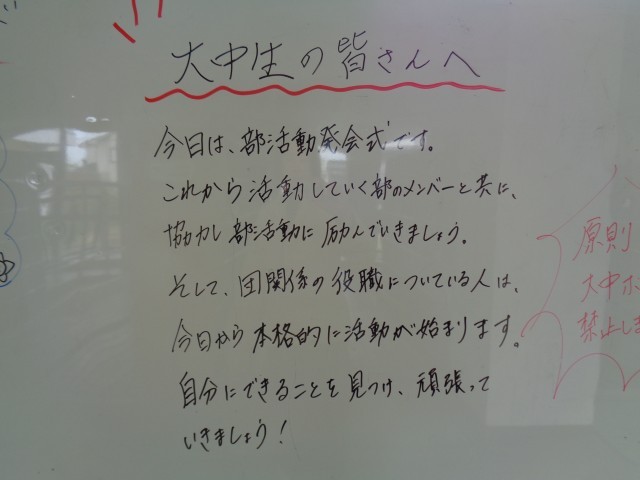 大中生の皆さんへ
今日は、部活動発会式です。
これから活動していく部のメンバーと共に、
協力し部活動に励んでいきましょう。
そして、団関係の役職についている人は、
今日から本格的に活動が始まります。
自分にできることを見つけ、頑張って
いきましょう！
原則
大中ホ
禁止しま